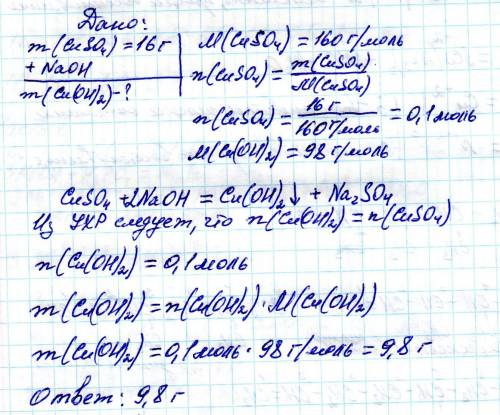 Дано:
m(CuSO₄) = 16 г
+ NaOH
m(Cu(OH)₂) - ?
M(CuSO₄) = 160 г/моль
n(CuSO₄) = m(CuSO₄) / M(CuSO₄)
n(CuSO₄) = 16 г / 160 г/моль = 0,1 моль
M(Cu(OH)₂) = 98 г/моль
CuSO₄ + 2NaOH = Cu(OH)₂↓ + Na₂SO₄
Из УХР следует, что n(Cu(OH)₂) = n(CuSO₄)
n(Cu(OH)₂) = 0,1 моль
m(Cu(OH)₂) = n(Cu(OH)₂) · M(Cu(OH)₂)
m(Cu(OH)₂) = 0,1 моль · 98 г/моль = 9,8 г
Ответ: 9,8 г